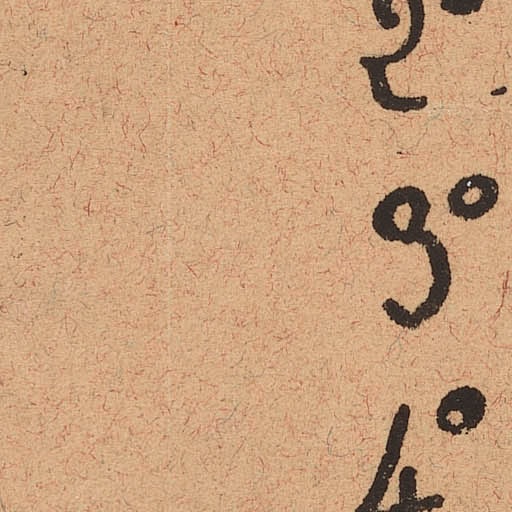 2°
3°
4°